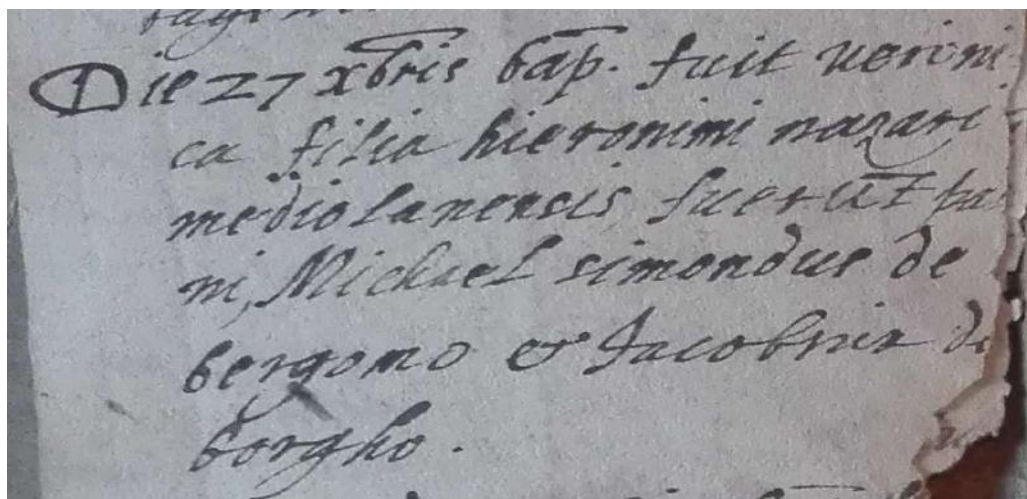 Die 27 xbris bap. fuit ueroni
ca filia hieronimi nazari
mediolanensis, fuerut
ni, Michael simondus de
bergomo & Jacobina
borgho.